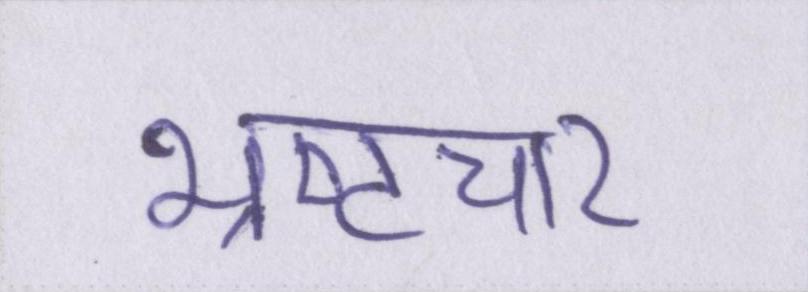 भ्रष्टचार